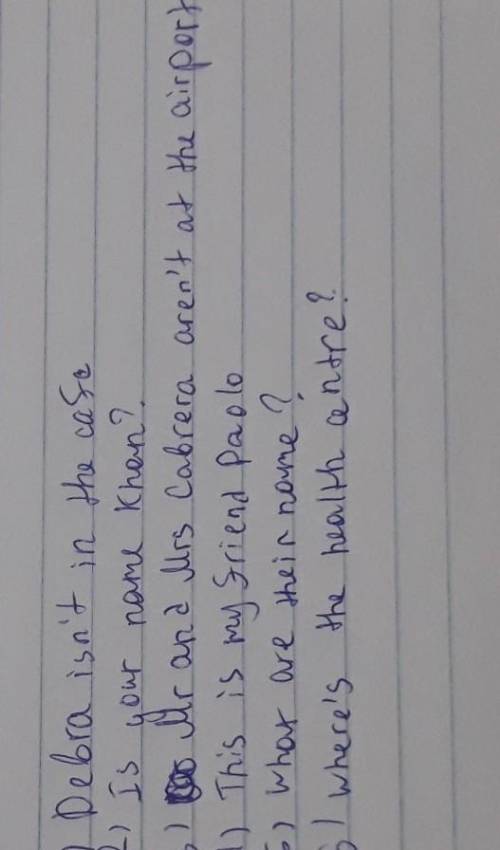 ) Debra isn't in the cafe
2) Is your name Khan?
) Mr and Mrs Cabrera aren't at the airport
) This is my friend Paolo
) what are their name?
) where's the health centre?